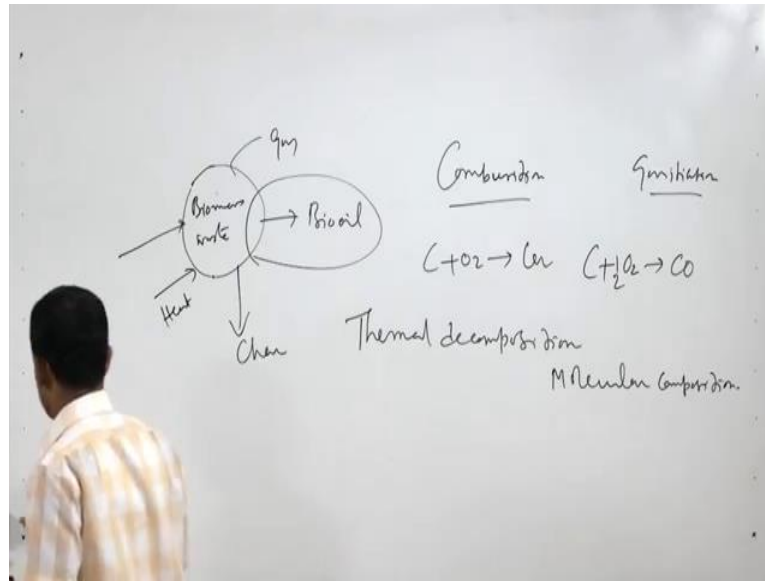 Gas
Biomass
waste
→ Biooil
Heat
Char
Combustion
Gasification
C+O2 → CO2
C+½O2 → CO
Thermal decomposition
Molecular composition.